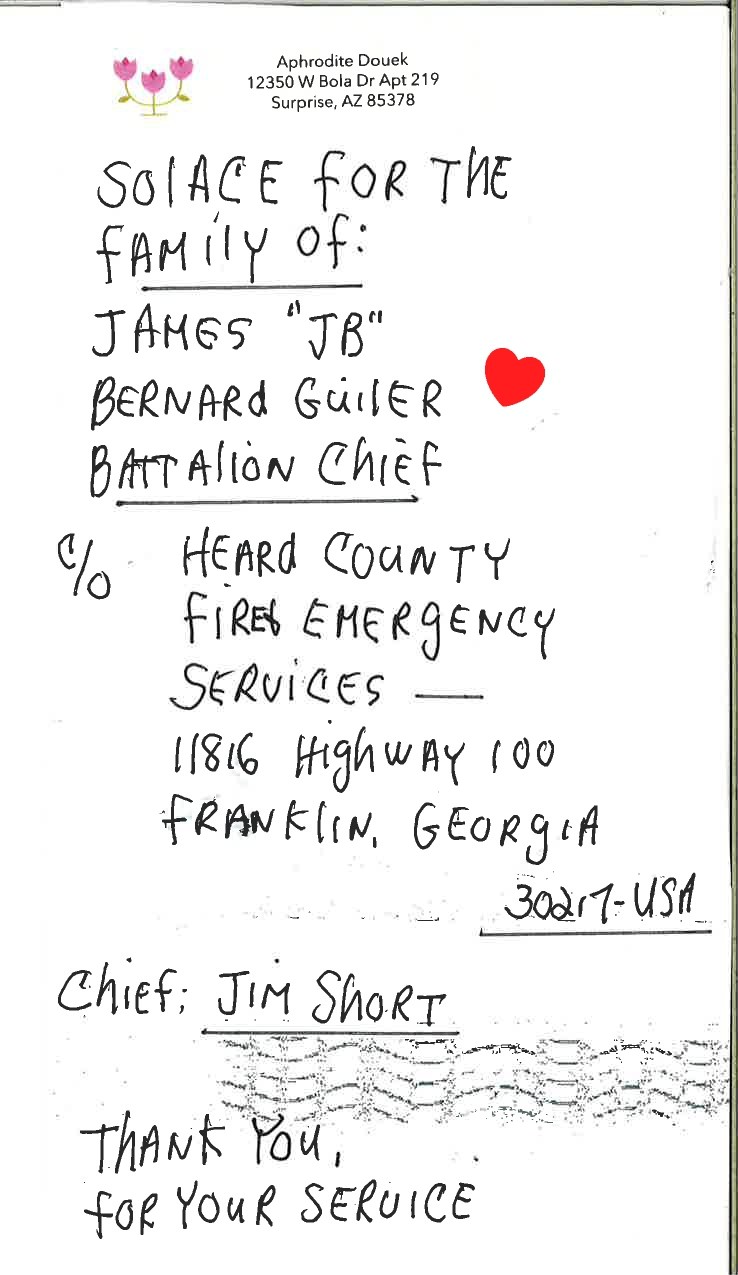 Aphrodite Douek
12350 W Bola Dr Apt 219
Surprise, AZ 85378
SOlACE FOR THE
FAMily Of:
JAMES "JB"
BERNARd GuilER
BATTAliON ChiEf
c/o HEARd COUNTY
FIRE EMERgENCY
SERViCES —
11816 HighWAY 100
FRANKliN, GEORgiA
30217-USA
Chief: JIM ShORT
ThANK YOU,
fOR YOUR SERVICE